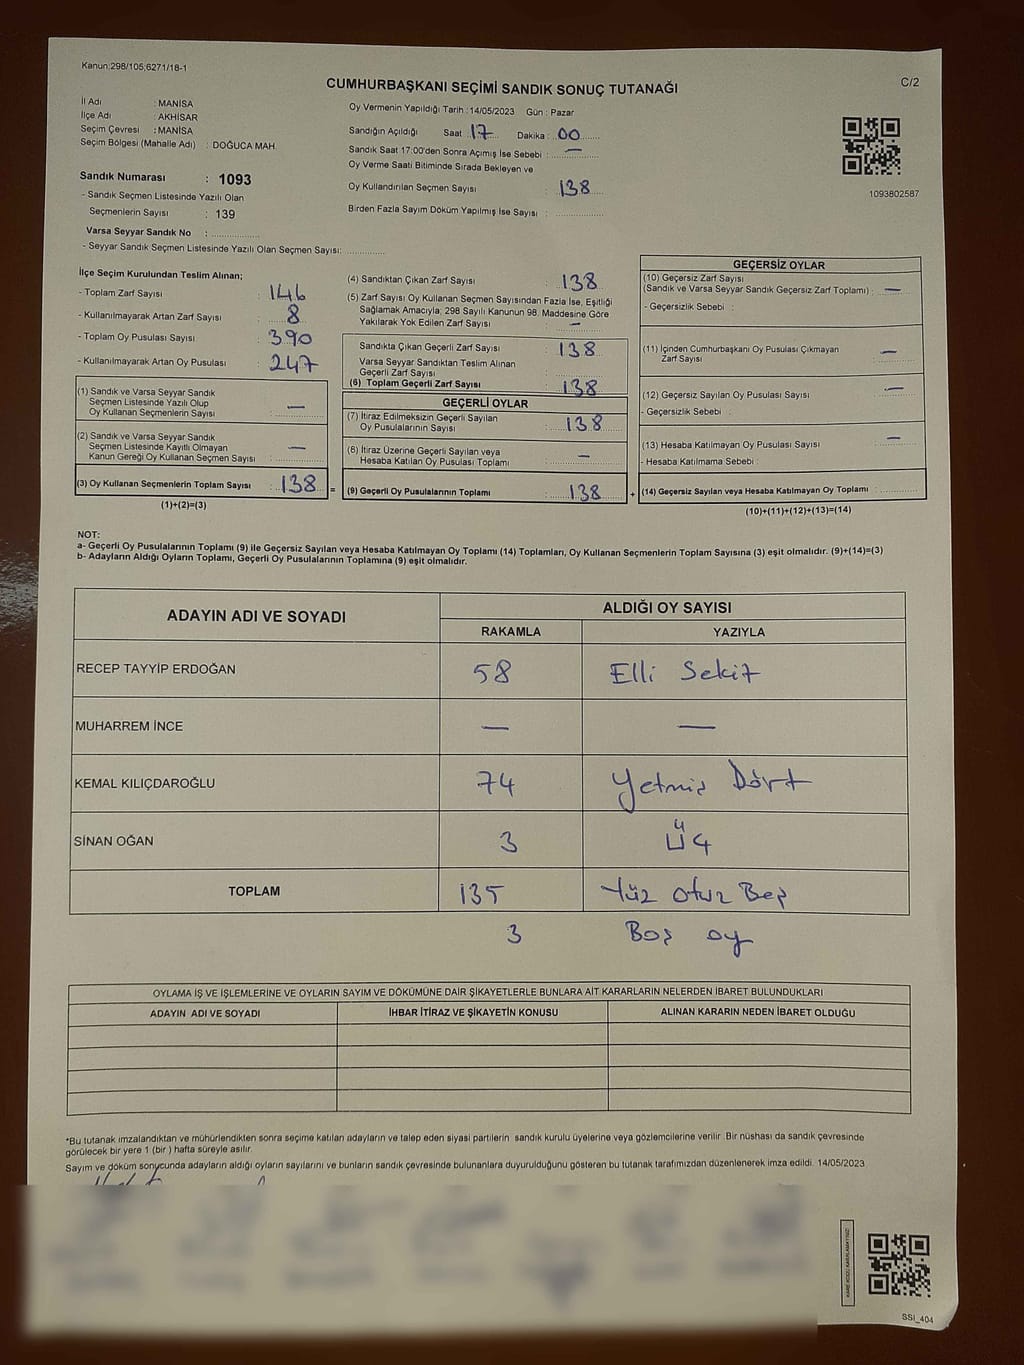 Kanun:298/105;6271/18-1
CUMHURBAŞKANI SEÇİMİ SANDIK SONUÇ TUTANAĞI
C/2
İl Adı : MANİSA
İlçe Adı : AKHİSAR
Seçim Çevresi : MANİSA
Seçim Bölgesi (Mahalle Adı) : DOĞUCA MAH.
Sandık Numarası : 1093
- Sandık Seçmen Listesinde Yazılı Olan
Seçmenlerin Sayısı : 139
Varsa Seyyar Sandık No :
- Seyyar Sandık Seçmen Listesinde Yazılı Olan Seçmen Sayısı:
Oy Vermenin Yapıldığı Tarih : 14/05/2023 Gün : Pazar
Sandığın Açıldığı Saat : 17 Dakika : 00
Sandık Saat 17:00'den Sonra Açımış İse Sebebi : —
Oy Verme Saati Bitiminde Sırada Bekleyen ve
Oy Kullandırılan Seçmen Sayısı : 138
Birden Fazla Sayım Döküm Yapılmış İse Sayısı :
1093802587
İlçe Seçim Kurulundan Teslim Alınan;
- Toplam Zarf Sayısı : 146
- Kullanılmayarak Artan Zarf Sayısı : 8
- Toplam Oy Pusulası Sayısı : 390
- Kullanılmayarak Artan Oy Pusulası : 247
(1) Sandık ve Varsa Seyyar Sandık
Seçmen Listesinde Yazılı Olup
Oy Kullanan Seçmenlerin Sayısı : —
(2) Sandık ve Varsa Seyyar Sandık
Seçmen Listesinde Kayıtlı Olmayan
Kanun Gereği Oy Kullanan Seçmen Sayısı : —
(3) Oy Kullanan Seçmenlerin Toplam Sayısı : 138 =
(1)+(2)=(3)
(4) Sandıktan Çıkan Zarf Sayısı : 138
(5) Zarf Sayısı Oy Kullanan Seçmen Sayısından Fazla İse, Eşitliği
Sağlamak Amacıyla; 298 Sayılı Kanunun 98. Maddesine Göre
Yakılarak Yok Edilen Zarf Sayısı : —
Sandıkta Çıkan Geçerli Zarf Sayısı : 138
Varsa Seyyar Sandıktan Teslim Alınan
Geçerli Zarf Sayısı :
(6) Toplam Geçerli Zarf Sayısı : 138
GEÇERLİ OYLAR
(7) İtiraz Edilmeksizin Geçerli Sayılan
Oy Pusulalarının Sayısı : 138
(8) İtiraz Üzerine Geçerli Sayılan veya
Hesaba Katılan Oy Pusulası Toplamı : —
(9) Geçerli Oy Pusulalarının Toplamı : 138 +
GEÇERSİZ OYLAR
(10) Geçersiz Zarf Sayısı
(Sandık ve Varsa Seyyar Sandık Geçersiz Zarf Toplamı) : —
- Geçersizlik Sebebi :
(11) İçinden Cumhurbaşkanı Oy Pusulası Çıkmayan
Zarf Sayısı : —
(12) Geçersiz Sayılan Oy Pusulası Sayısı : —
- Geçersizlik Sebebi :
(13) Hesaba Katılmayan Oy Pusulası Sayısı : —
- Hesaba Katılmama Sebebi :
(14) Geçersiz Sayılan veya Hesaba Katılmayan Oy Toplamı :
(10)+(11)+(12)+(13)=(14)
NOT:
a- Geçerli Oy Pusulalarının Toplamı (9) ile Geçersiz Sayılan veya Hesaba Katılmayan Oy Toplamı (14) Toplamları, Oy Kullanan Seçmenlerin Toplam Sayısına (3) eşit olmalıdır. (9)+(14)=(3)
b- Adayların Aldığı Oyların Toplamı, Geçerli Oy Pusulalarının Toplamına (9) eşit olmalıdır.
ADAYIN ADI VE SOYADI
ALDIĞI OY SAYISI
RAKAMLA YAZIYLA
RECEP TAYYİP ERDOĞAN 58 Elli Sekiz
MUHARREM İNCE — —
KEMAL KILIÇDAROĞLU 74 Yetmiş Dört
SİNAN OĞAN 3 Üç
TOPLAM 135 Yüz Otuz Beş
3 Boş oy
OYLAMA İŞ VE İŞLEMLERİNE VE OYLARIN SAYIM VE DÖKÜMÜNE DAİR ŞİKAYETLERLE BUNLARA AİT KARARLARIN NELERDEN İBARET BULUNDUKLARI
ADAYIN ADI VE SOYADI İHBAR İTİRAZ VE ŞİKAYETİN KONUSU ALINAN KARARIN NEDEN İBARET OLDUĞU
*Bu tutanak imzalandıktan ve mühürlendikten sonra seçime katılan adayların ve talep eden siyasi partilerin sandık kurulu üyelerine veya gözlemcilerine verilir. Bir nüshası da sandık çevresinde
görülecek bir yere 1 (bir) hafta süreyle asılır.
Sayım ve döküm sonucunda adayların aldığı oyların sayılarını ve bunların sandık çevresinde bulunanlara duyurulduğunu gösteren bu tutanak tarafımızdan düzenlenerek imza edildi. 14/05/2023
SSI_404